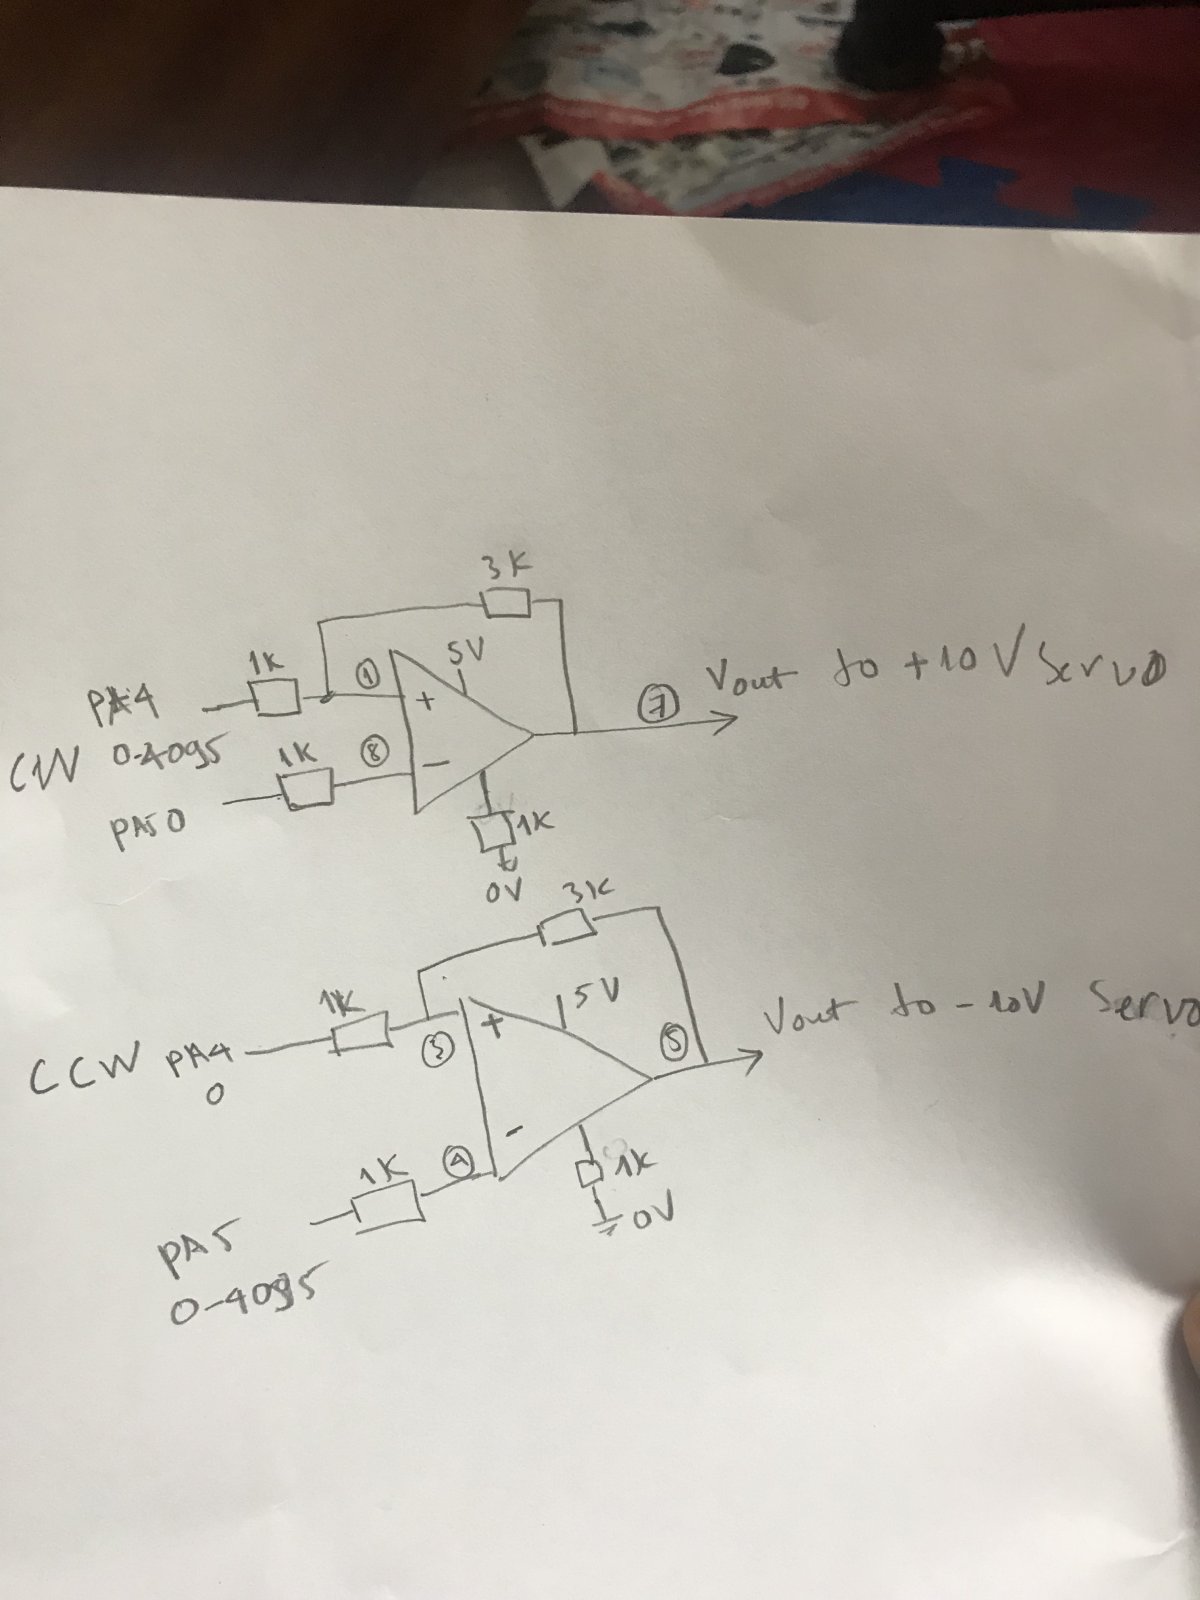 3K
5V
1K
1
+
PA4
7
Vout to +10V Servo
CW 0-4095
1K
8
-
PA5 0
1K
0V
3K
1K
5V
+
3
5
Vout to -10V Servo
CCW PA4
0
-
4
1K
1K
0V
PA5
0-4095